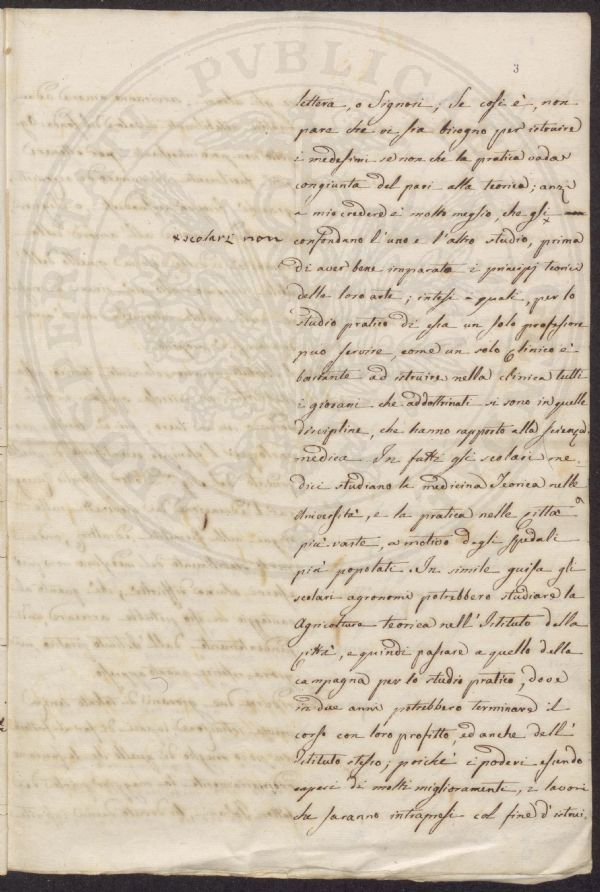 3
lettera, o Signori; Se così è, non
pare che vi sia bisogno per istruire
i medesimi se non che la pratica vada
congiunta del pari alla teorica; anzi
a mio credere è molto meglio, che gli
× scolari non
confondano l'uno e l'altro studio, prima
di aver bene imparato i principj teorici
della loro arte; intesi i quali, per lo
studio pratico di essa un solo professore
può servire, come un solo Clinico è
bastante ad istruire nella clinica tutti
i giovani che addottrinati si sono in quelle
discipline, che hanno rapporto alla scienza
medica. In fatti gli scolari me-
dici studiano la medicina Teorica nelle
Università, e la pratica nelle città
più vaste, a motivo degli Spedali
più popolati. In simile guisa gli
scolari agronomi potrebbero studiare la
Agricoltura teorica nell'Istituto della
città, e quindi passare a quello della
campagna per lo studio pratico, dove
in due anni potrebbero terminare il
corso con loro profitto, ed anche dell'
Istituto stesso; poiché i poderi essendo
capaci di molti miglioramenti, i lavori
che saranno intrapresi col fine d'istrui-